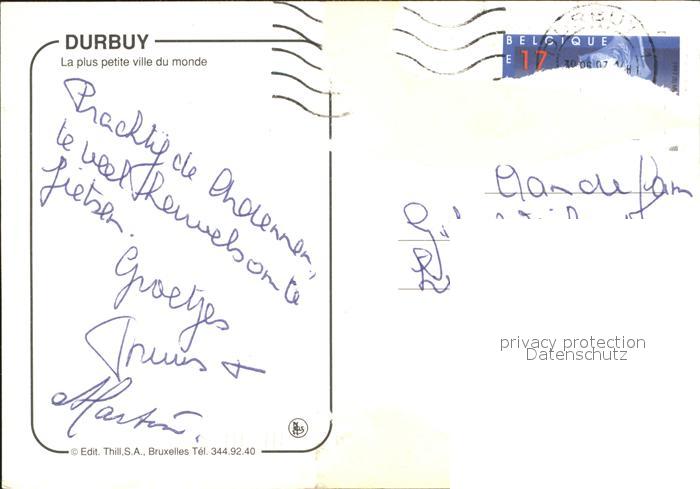 DURBUY
La plus petite ville du monde
Prachtig de Ardennen,
te veel heuvels om te
fietsen.
Groetjes
Truus +
Martin.
© Edit. Thill,S.A., Bruxelles Tél. 344.92.40
BELGIQUE
E 17
Aan de Fam
privacy protection
Datenschutz